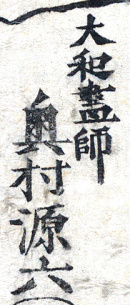 大和畫師
奥村源六